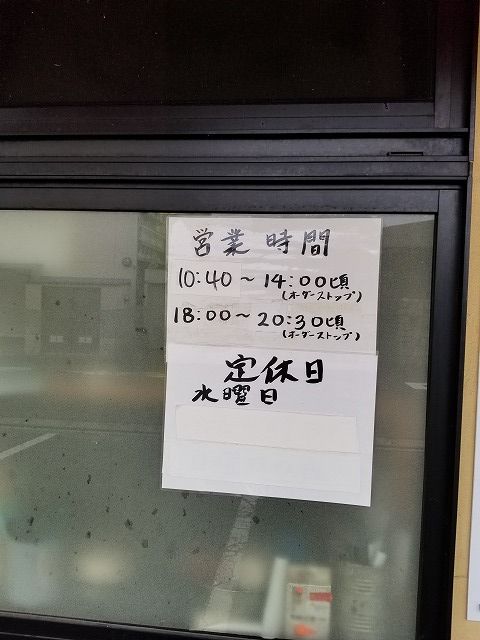 営業時間
10:40～14:00頃
(オーダーストップ)
18:00～20:30頃
(オーダーストップ)
定休日
水曜日